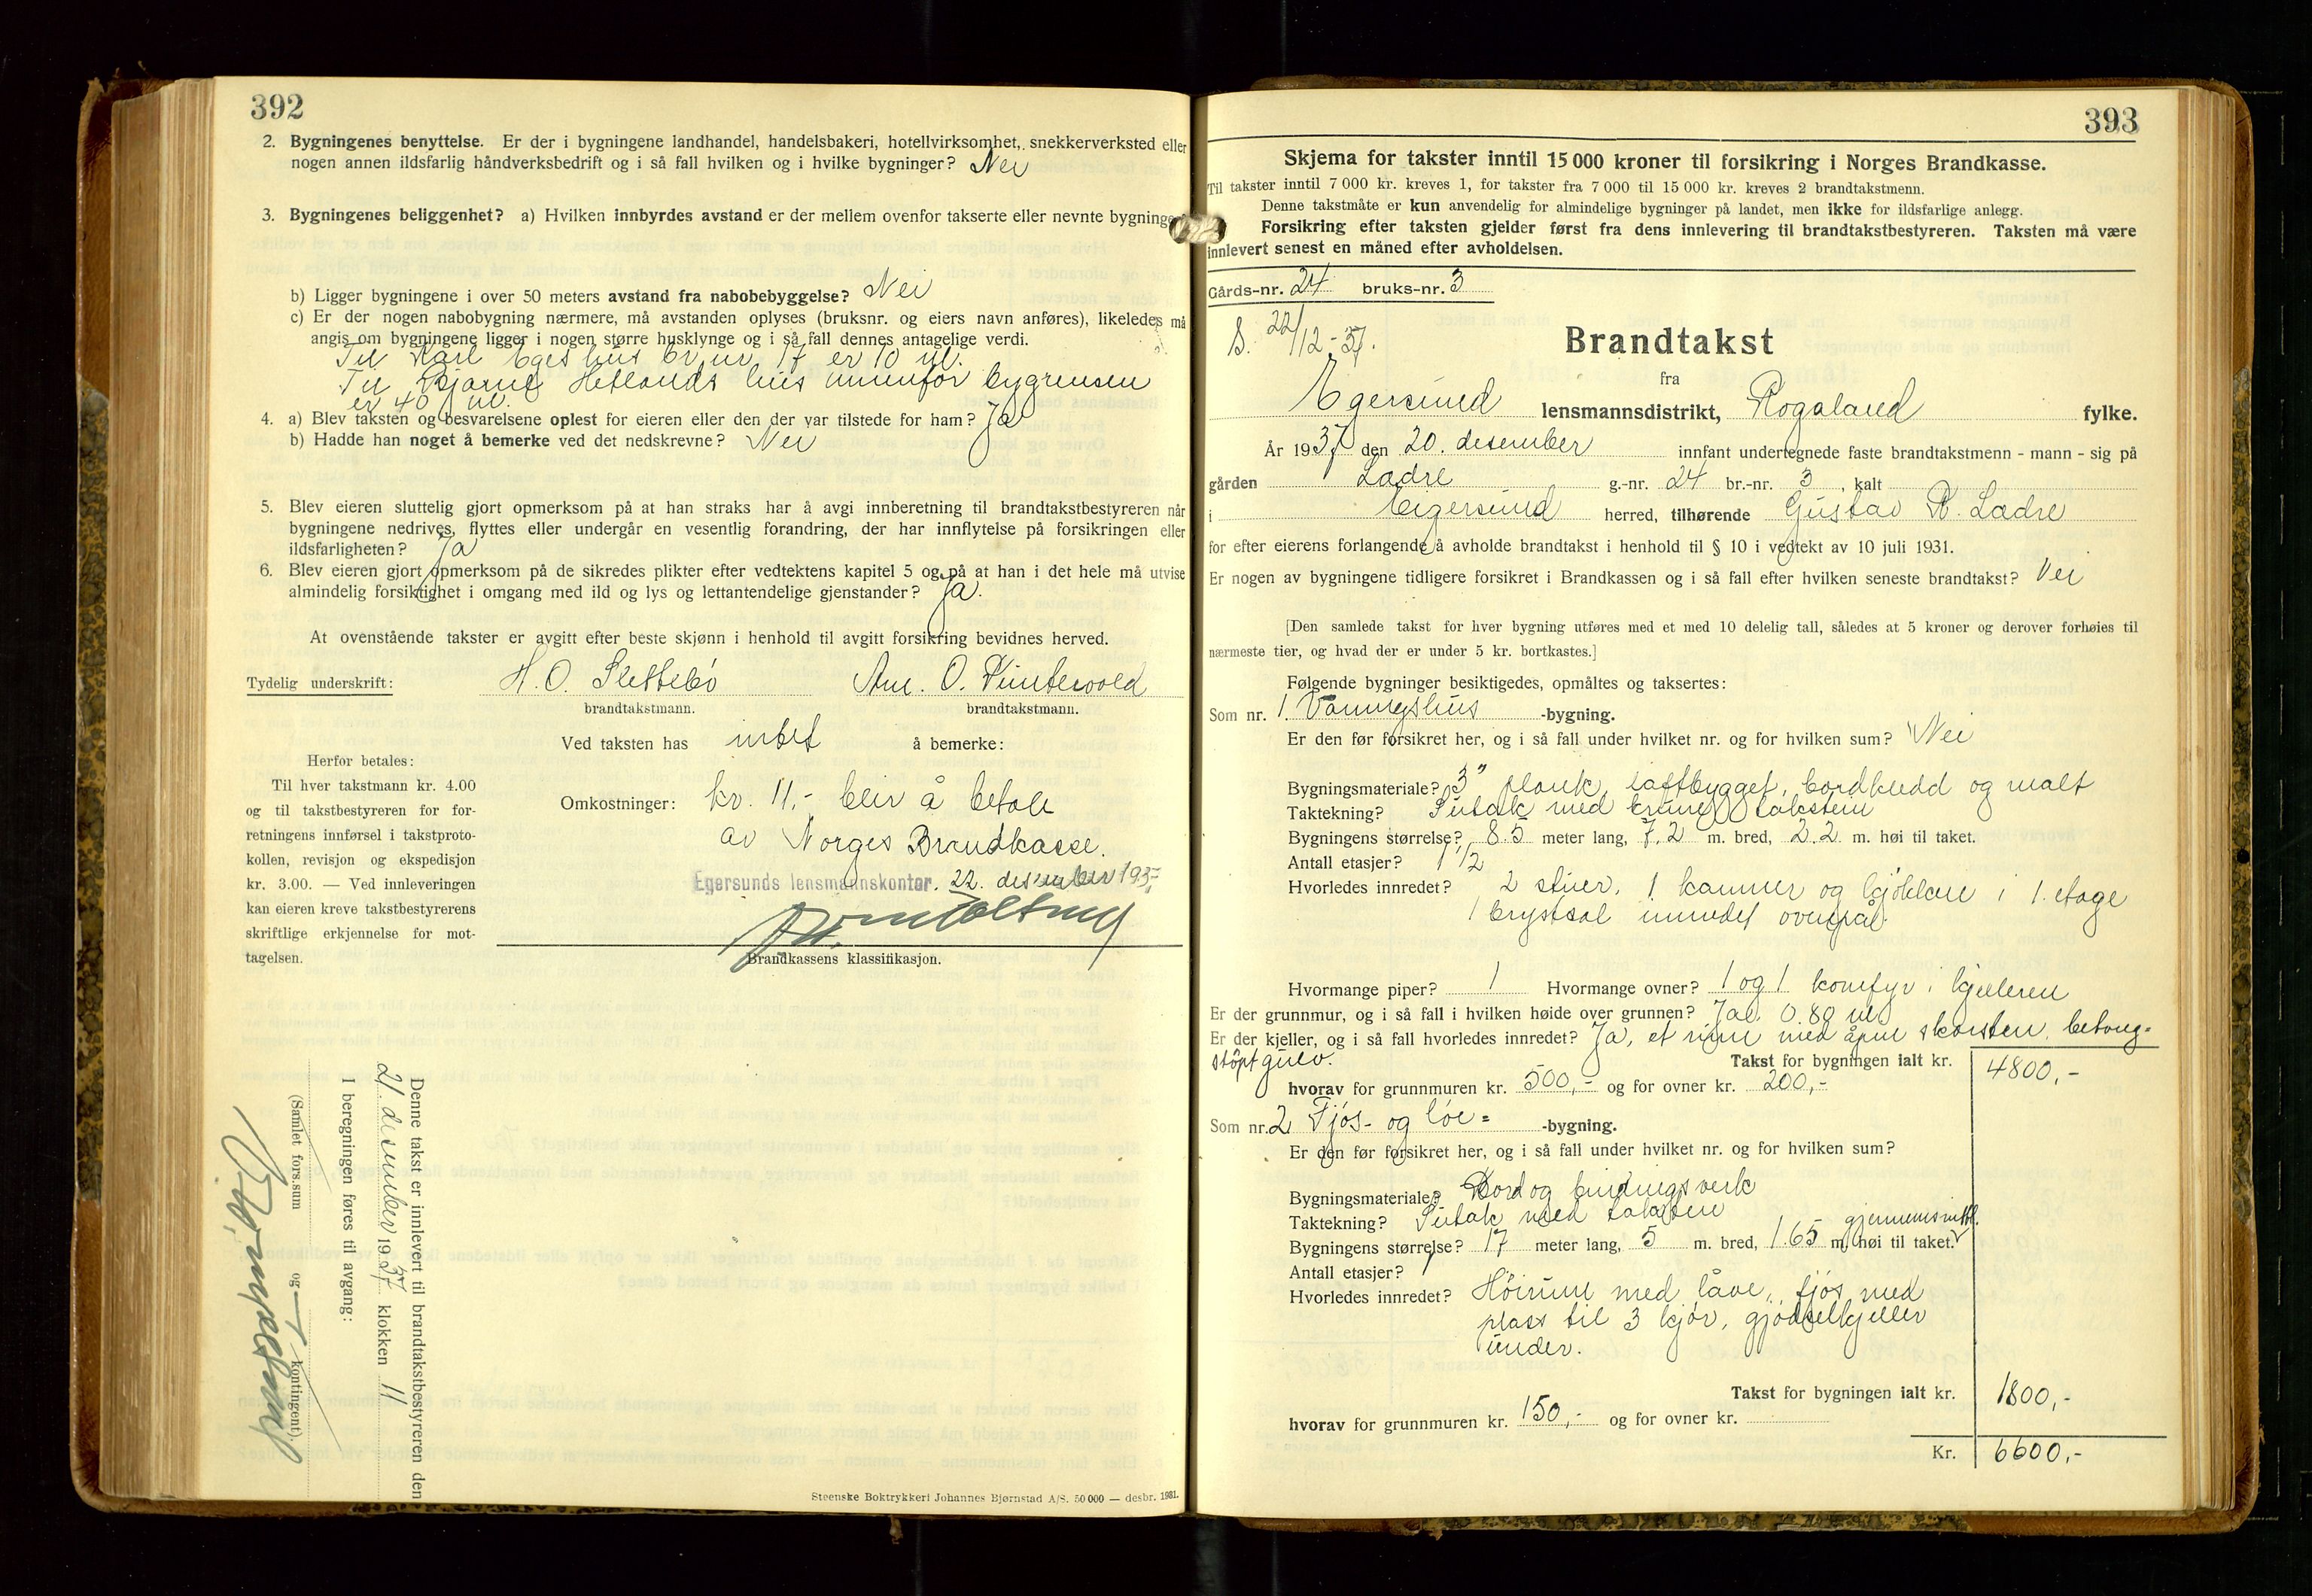 392
2. Bygningenes benyttelse. Er der i bygningene landhandel, handelsbakeri, hotellvirksomhet, snekkerverksted eller
nogen annen ildsfarlig håndverksbedrift og i så fall hvilken og i hvilke bygninger? Nei
3. Bygningenes beliggenhet? a) Hvilken innbyrdes avstand er der mellem ovenfor takserte eller nevnte bygninger
b) Ligger bygningene i over 50 meters avstand fra nabobebyggelse? Nei
c) Er der nogen nabobygning nærmere, må avstanden oplyses (bruksnr. og eiers navn anføres), likeledes må
angis om bygningene ligger i nogen større husklynge og i så fall dennes antagelige verdi.
Til Karl Eges hus br.nr. 17 er 10 m.
Til Bjarne Hetlands hus innenfor bygrensen
er 40 m.
4. a) Blev taksten og besvarelsene oplest for eieren eller den der var tilstede for ham? Ja
b) Hadde han noget å bemerke ved det nedskrevne? Nei
5. Blev eieren sluttelig gjort opmerksom på at han straks har å avgi innberetning til brandtakstbestyreren når
bygningene nedrives, flyttes eller undergår en vesentlig forandring, der har innflytelse på forsikringen eller
ildsfarligheten? Ja
6. Blev eieren gjort opmerksom på de sikredes plikter efter vedtektens kapitel 5 og på at han i det hele må utvise
almindelig forsiktighet i omgang med ild og lys og lettantendelige gjenstander? Ja.
At ovenstående takster er avgitt efter beste skjønn i henhold til avgitt forsikring bevidnes herved.
Tydelig underskrift: H. O. Slettebö
brandtakstmann. brandtakstmann.
Ved taksten has intet å bemerke:
Herfor betales:
Til hver takstmann kr. 4.00
og til takstbestyreren for for-
retningens innførsel i takstproto-
kollen, revisjon og ekspedisjon
kr. 3.00. — Ved innleveringen
kan eieren kreve takstbestyrerens
skriftlige erkjennelse for mot-
tagelsen.
Omkostninger: kr. 11,- blir å betale
av Norges Brandkasse.
Egersunds lensmannskontor, 22. desember 1937
Brandkassens klassifikasjon.
Denne takst er innlevert til brandtakstbestyreren den
21. desember 1937 klokken 11
I beregningen føres til avgang:
(Samlet fors.sum og kontingent).
Steenske Boktrykkeri Johannes Bjørnstad A/S. 50 000 — desbr. 1931.
393
Skjema for takster inntil 15 000 kroner til forsikring i Norges Brandkasse.
Til takster inntil 7 000 kr. kreves 1, for takster fra 7 000 til 15 000 kr. kreves 2 brandtakstmenn.
Denne takstmåte er kun anvendelig for almindelige bygninger på landet, men ikke for ildsfarlige anlegg.
Forsikring efter taksten gjelder først fra dens innlevering til brandtakstbestyreren. Taksten må være
innlevert senest en måned efter avholdelsen.
Gårds-nr. 24 bruks-nr. 3
S. 22/12-37.
Brandtakst
fra
Egersund lensmannsdistrikt, Rogaland fylke.
År 1937 den 20. desember innfant undertegnede faste brandtakstmenn - mann - sig på
gården Ladre g.-nr. 24 br.-nr. 3, kalt
i Eigersund herred, tilhørende Gustav R. Ladre
for efter eierens forlangende å avholde brandtakst i henhold til § 10 i vedtekt av 10 juli 1931.
Er nogen av bygningene tidligere forsikret i Brandkassen og i så fall efter hvilken seneste brandtakst? Nei
[Den samlede takst for hver bygning utføres med et med 10 delelig tall, således at 5 kroner og derover forhøies til
nærmeste tier, og hvad der er under 5 kr. bortkastes.]
Følgende bygninger besiktigedes, opmåltes og taksertes:
Som nr. 1. Våningshus -bygning.
Er den før forsikret her, og i så fall under hvilket nr. og for hvilken sum? Nei
Bygningsmateriale? 3" plank, laftbygget, bordkledd og malt
Taktekning? Sutak med brune taksten
Bygningens størrelse? 8.5 meter lang, 7.2 m. bred, 2.2 m. høi til taket.
Antall etasjer? 1 1/2
Hvorledes innredet? 2 stuer, 1 kammer og kjökken i 1. etage
1 kvistsal innredet ovenpå.
Hvormange piper? 1 Hvormange ovner? 1 og 1 komfyr i kjelleren
Er der grunnmur, og i så fall i hvilken høide over grunnen? Ja. 0.80 m.
Er der kjeller, og i så fall hvorledes innredet? Ja, et rum med åpen skorsten, betong-
stöpt gulv. Takst for bygningen ialt kr. 4800,-
hvorav for grunnmuren kr. 500,- og for ovner kr. 200,-
Som nr. 2 Fjös- og löe- -bygning.
Er den før forsikret her, og i så fall under hvilket nr. og for hvilken sum?
Bygningsmateriale? Bord og bindingsverk
Taktekning? Sutak med taksten
gjennemsnittl.
Bygningens størrelse? 17 meter lang, 5 m. bred, 1.65 m. høi til taket.
Antall etasjer? 1
Hvorledes innredet? Höirum med låve, fjös med
plass til 3 kjör, gjödselkjeller
under.
Takst for bygningen ialt kr. 1800,-
hvorav for grunnmuren kr. 150,- og for ovner kr.
Kr. 6600,-